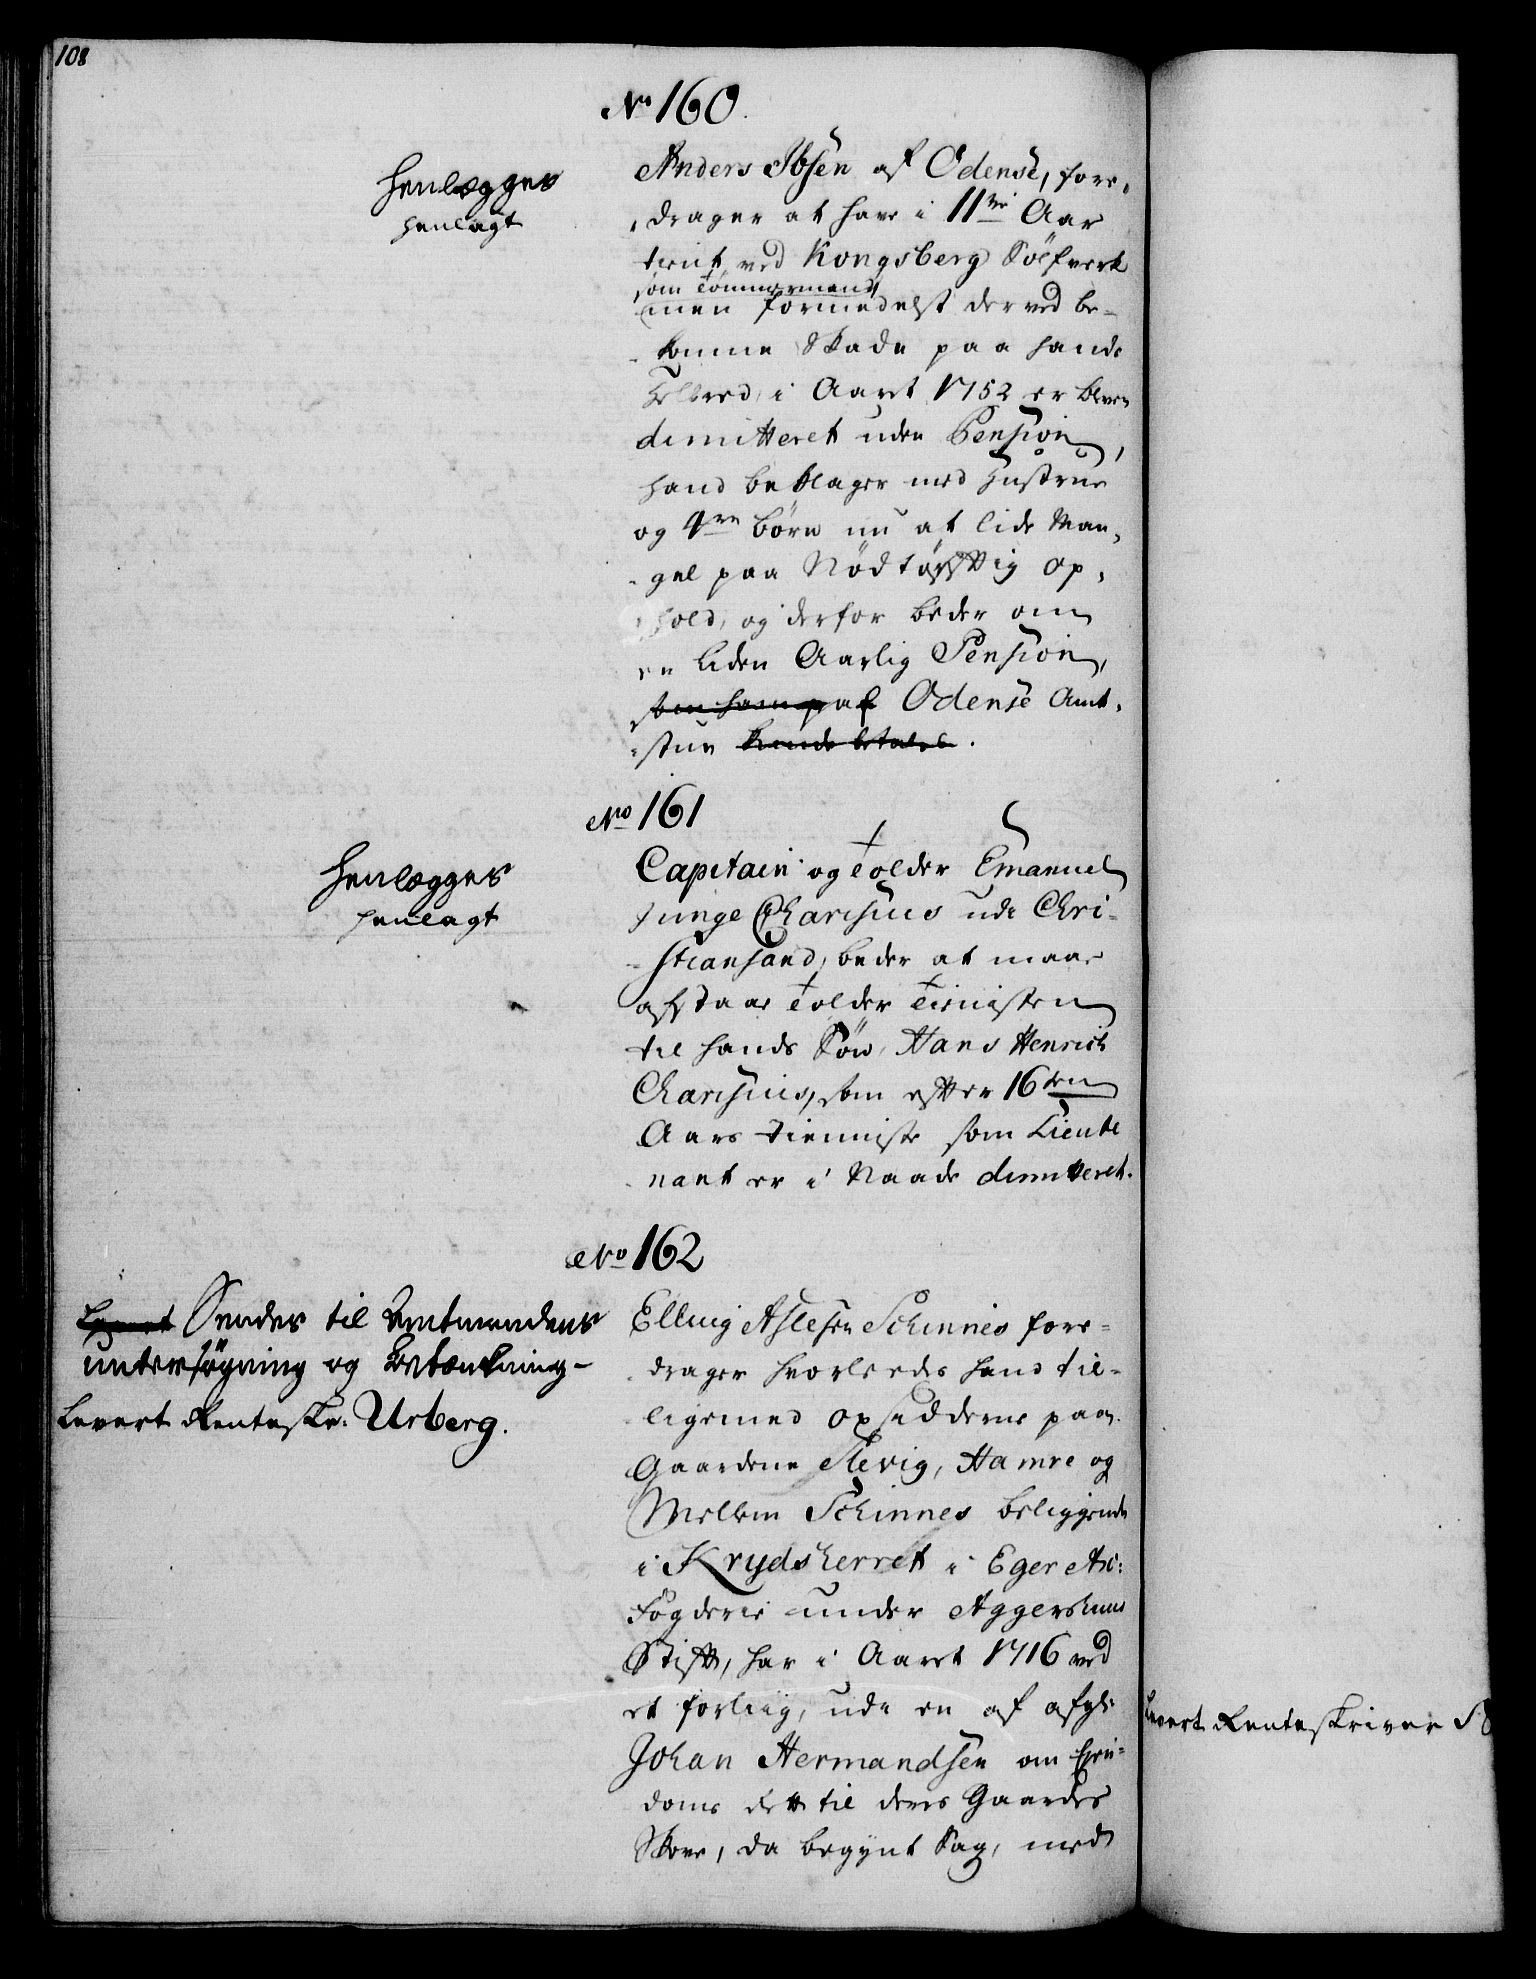 108
No 160.
Henlegges
henlagt
Anders Ibsen af Odense, fore-
drager at have i 11ve Aar
tient ved Kongsberg Sölfverk
som Tömmermand
men formedelst derved be-
komne Skade paa hands
Helbred, i Aaret 1752 er bleven
dimitteret uden Pension,
hand beklager med Hustrue
og 4re börn nu at lide Man-
gel paa Nödtörfftig op-
hold, og derfor beder om
en liden Aarlig Pension,
som hand af Odense Amt-
stue kunde betales.
No 161
Henlægges
henlagt
Capitain og Tolder Emanuel
Junge Charisius udi Chri-
stiansand, beder at maae
afstaae Tolder Tienisten
til hands Sön, Hans Henrich
Charisius, som efter 16ten
Aars tienniste som Lieute
nant er i Naade dimitteret.
No 162
Levert Sendes til Amtmandens
undersøgning og Betænkning-
Levert Renteskr: Urberg.
Elling Aslesen Schinnes fore-
drager hvorleeds hand til-
ligemed opsidderne paa
Gaardene Slevig, Hamre og
Mellem Schinnes beliggende
i Krydsherret i Eger
Fogderie under Aggershuus
Stift, har i Aaret 1716 ved
et forliig, udi en af afgl:
Johan Hermandsen om Eien-
doms Rett til deres Gaardes
Skove, da begynt Sag, med
Levert Renteskriver